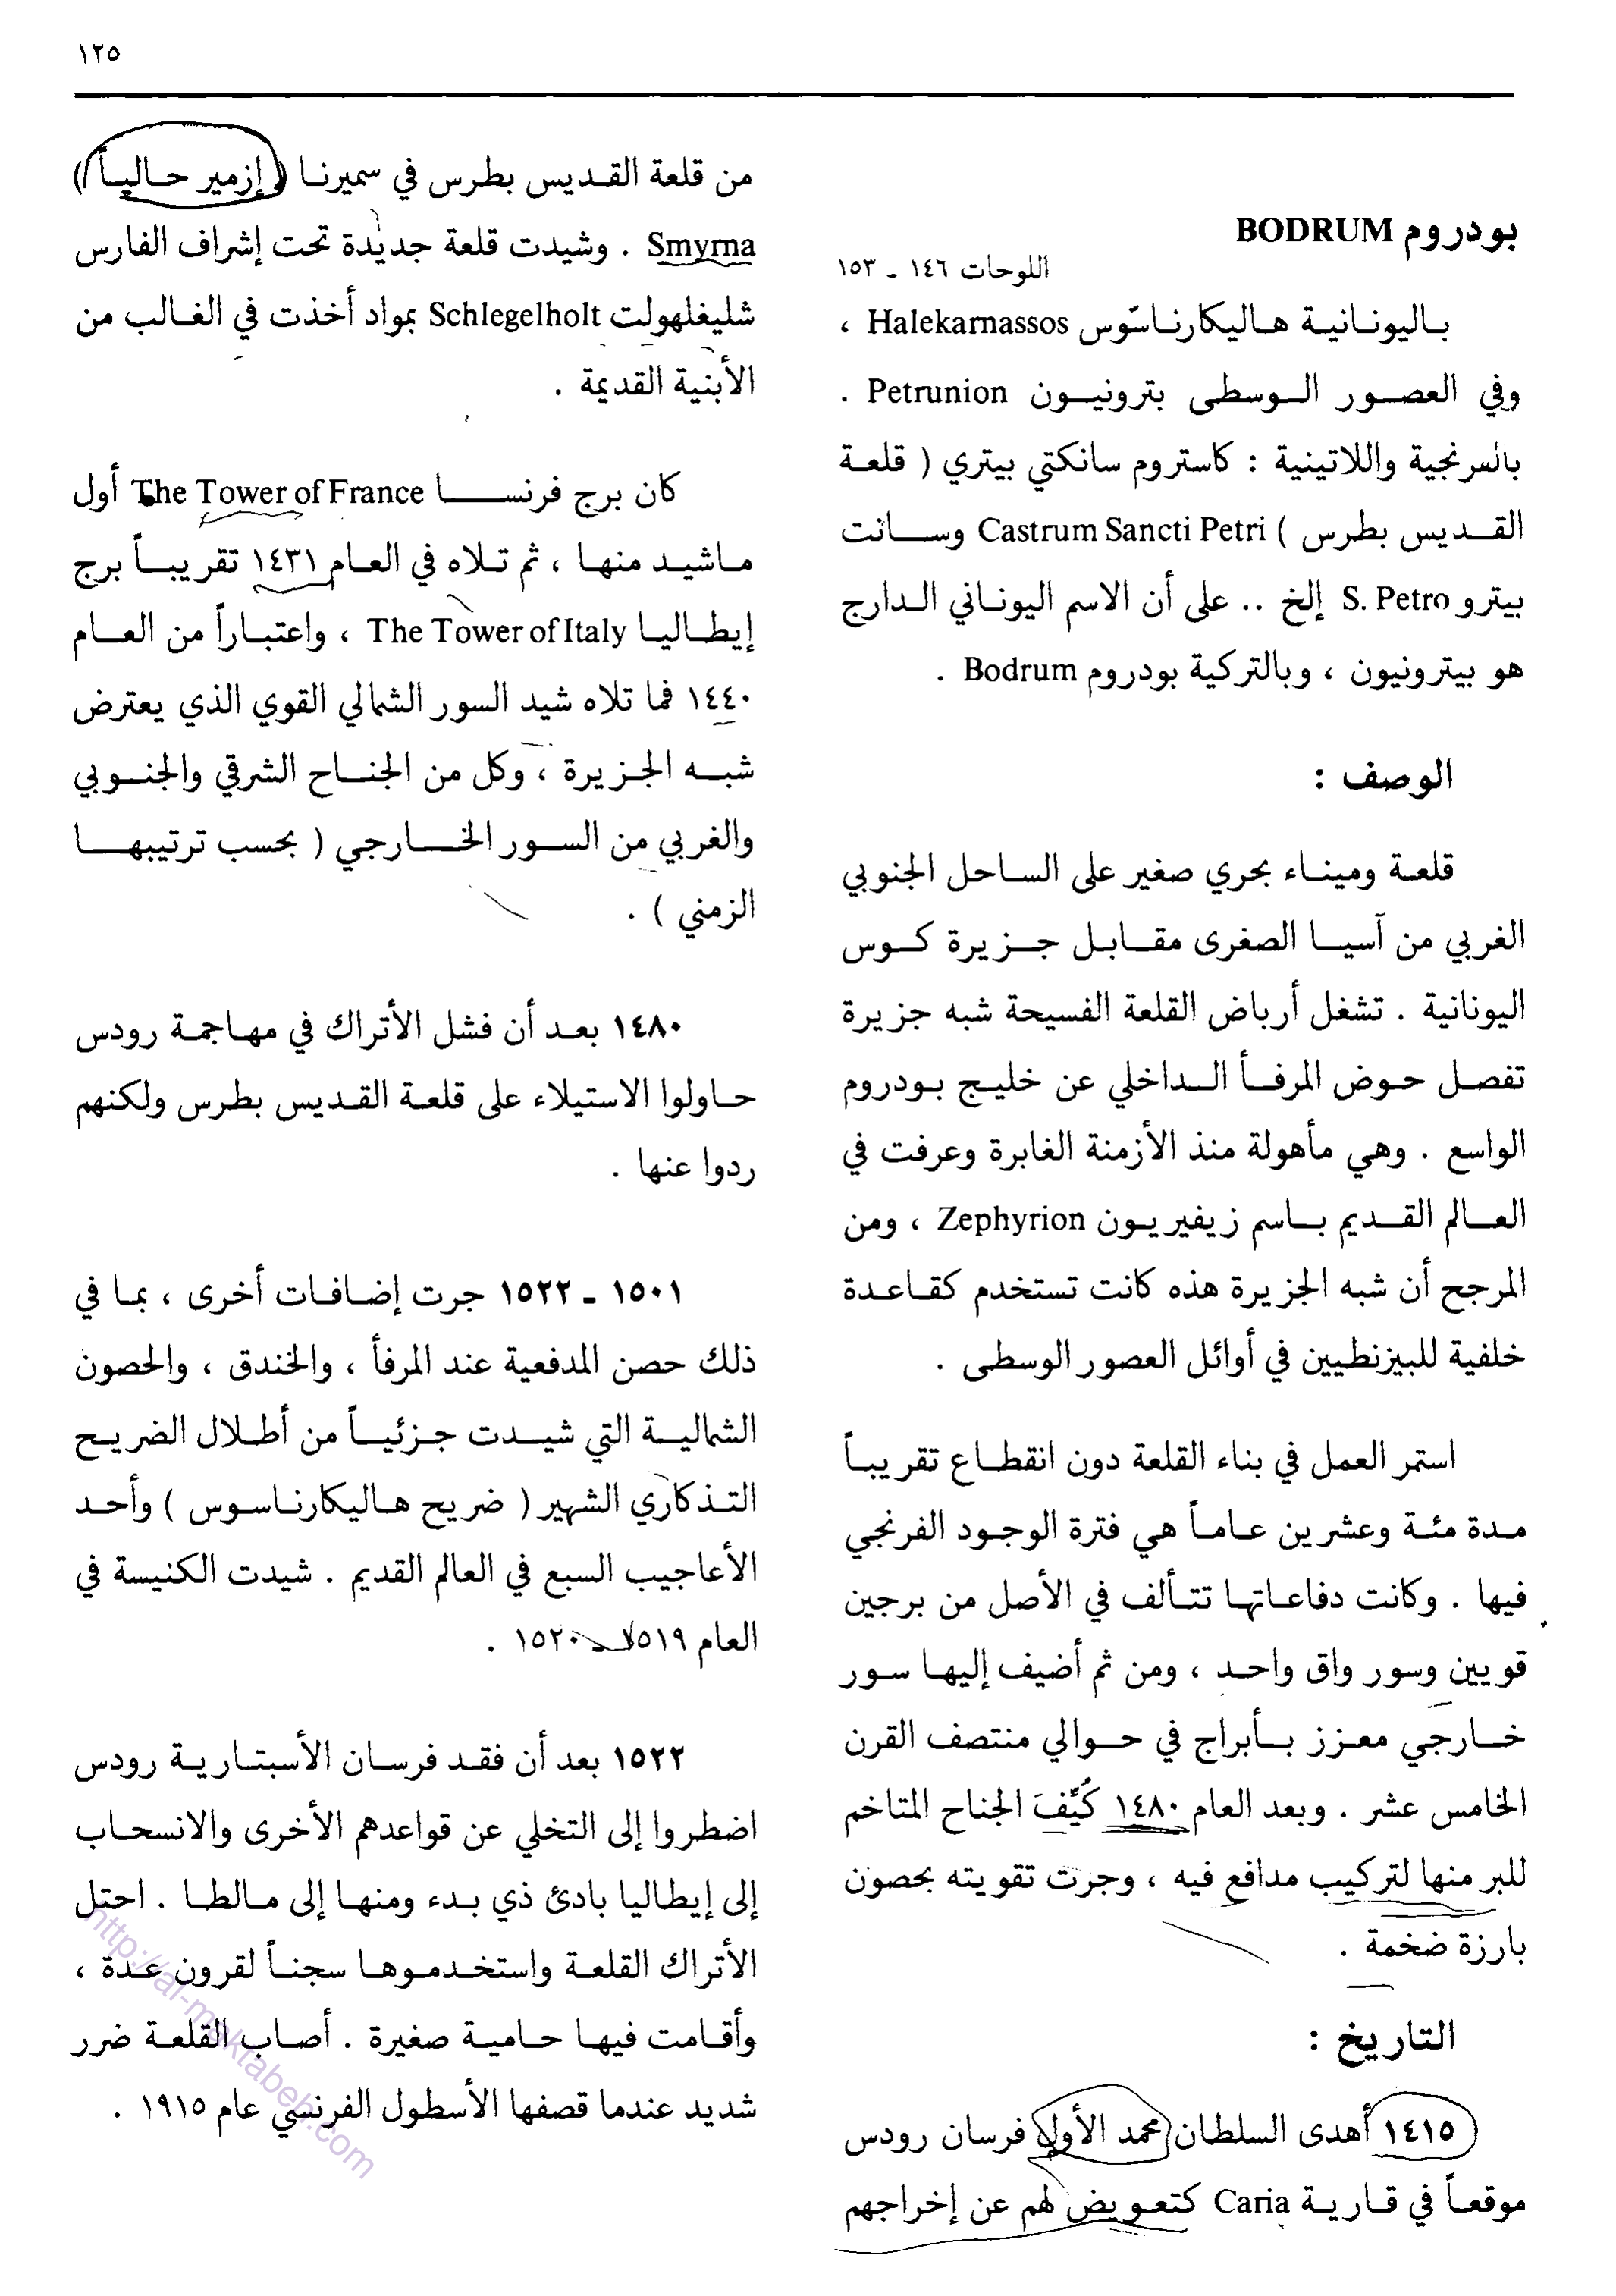 ١٢٥
بودروم BODRUM
اللوحات ١٤٦ ـ ١٥٣
باليونانية هاليكارناسّوس Halekarnassos ،
وفي العصور الوسطى بترونيون Petrunion .
بالفرنجية واللاتينية : كاستروم سانكتي بيتري ( قلعة
القديس بطرس ) Castrum Sancti Petri وسانت
بيترو S. Petro إلخ .. على أن الاسم اليوناني الدارج
هو بيترونيون ، وبالتركية بودروم Bodrum .
الوصف :
قلعة وميناء بحري صغير على الساحل الجنوبي
الغربي من آسيا الصغرى مقابل جزيرة كوس
اليونانية . تشغل أرباض القلعة الفسيحة شبه جزيرة
تفصل حوض المرفأ الداخلي عن خليج بودروم
الواسع . وهي مأهولة منذ الأزمنة الغابرة وعرفت في
العالم القديم باسم زيفيريون Zephyrion ، ومن
المرجح أن شبه الجزيرة هذه كانت تستخدم كقاعدة
خلفية للبيزنطيين في أوائل العصور الوسطى .
استمر العمل في بناء القلعة دون انقطاع تقريباً
مدة مئة وعشرين عاماً هي فترة الوجود الفرنجي
فيها . وكانت دفاعاتها تتألف في الأصل من برجين
قويين وسور واق واحد ، ومن ثم أضيف إليها سور
خارجي معزز بأبراج في حوالي منتصف القرن
الخامس عشر . وبعد العام ١٤٨٠ كُيِّفَ الجناح المتاخم
للبر منها لتركيب مدافع فيه ، وجرت تقويته بحصون
بارزة ضخمة .
التاريخ :
١٤١٥ أهدى السلطان محمد الأول فرسان رودس
موقعاً في قارية Caria كتعويض لهم عن إخراجهم
من قلعة القديس بطرس في سميرنا ( إزمير حالياً )
Smyrna . وشيدت قلعة جديدة تحت إشراف الفارس
شليغلهولت Schlegelholt بمواد أخذت في الغالب من
الأبنية القديمة .
كان برج فرنسا The Tower of France أول
ماشيد منها ، ثم تلاه في العام ١٤٣١ تقريباً برج
إيطاليا The Tower of Italy ، واعتباراً من العام
١٤٤٠ فما تلاه شيد السور الشمالي القوي الذي يعترض
شبه الجزيرة ، وكل من الجناح الشرقي والجنوبي
والغربي من السور الخارجي ( بحسب ترتيبها
الزمني ) .
١٤٨٠ بعد أن فشل الأتراك في مهاجمة رودس
حاولوا الاستيلاء على قلعة القديس بطرس ولكنهم
ردوا عنها .
١٥٠١ ـ ١٥٢٢ جرت إضافات أخرى ، بما في
ذلك حصن المدفعية عند المرفأ ، والخندق ، والحصون
الشمالية التي شيدت جزئياً من أطلال الضريح
التذكاري الشهير ( ضريح هاليكارناسوس ) وأحد
الأعاجيب السبع في العالم القديم . شيدت الكنيسة في
العام ١٥١٩ ـ ١٥٢٠ .
١٥٢٢ بعد أن فقد فرسان الأسبتارية رودس
اضطروا إلى التخلي عن قواعدهم الأخرى والانسحاب
إلى إيطاليا بادئ ذي بدء ومنها إلى مالطا . احتل
الأتراك القلعة واستخدموها سجناً لقرون عدة ،
وأقامت فيها حامية صغيرة . أصاب القلعة ضرر
شديد عندما قصفها الأسطول الفرنسي عام ١٩١٥ .
http://al-maktabeh.com